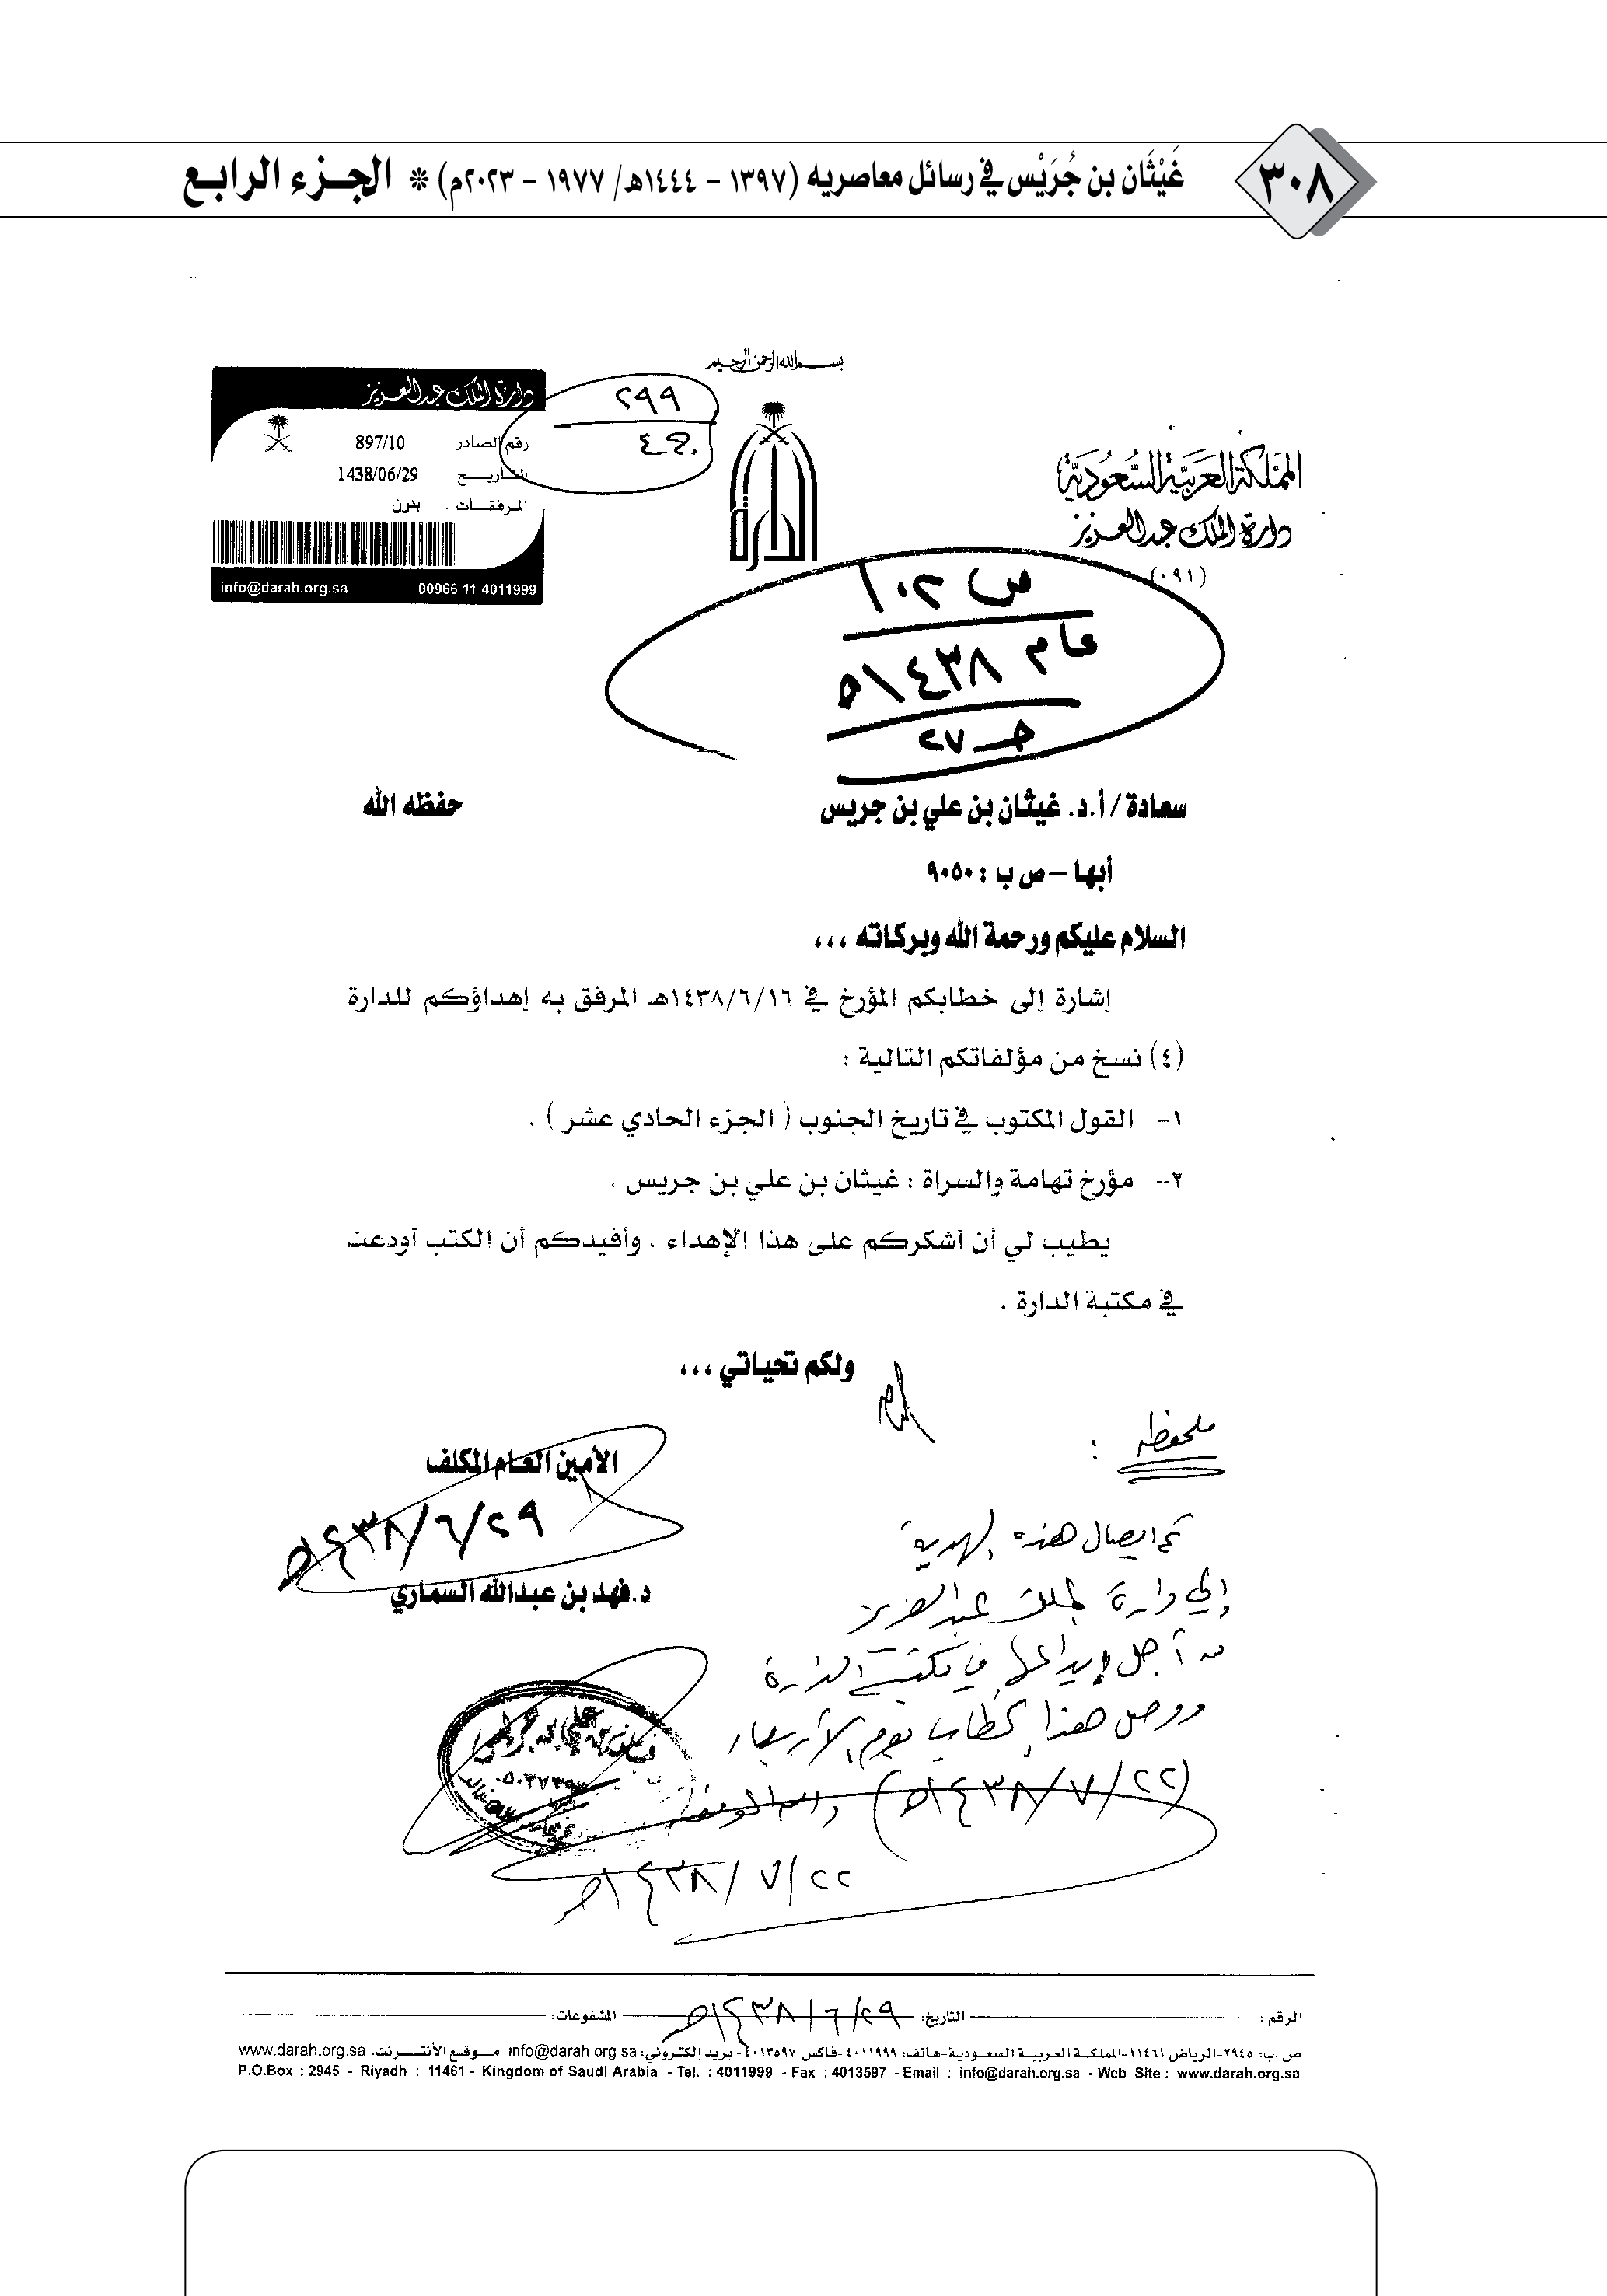 ٣٠٨
غَيْثَان بن جُرَيْس في رسائل معاصريه (١٣٩٧ - ١٤٤٤هـ/ ١٩٧٧ - ٢٠٢٣م) * الجزء الرابع
بسم الله الرحمن الرحيم
المملكة العربية السعودية
دارة الملك عبدالعزيز
(٠٩١)
الدارة
دارة الملك عبدالعزيز
رقم الصادر 897/10
التاريخ 1438/06/29
المرفقات . بدون
info@darah.org.sa 00966 11 4011999
٢٩٩
ص ١٠٢
عام ١٤٣٨هـ
جـ ٢٧
سعادة / أ.د. غيثان بن علي بن جريس حفظه الله
أبها – ص ب : ٩٠٥٠
السلام عليكم ورحمة الله وبركاته ،،،
إشارة إلى خطابكم المؤرخ في ١٤٣٨/٦/١٦هـ المرفق به إهداؤكم للدارة
(٤) نسخ من مؤلفاتكم التالية :
١- القول المكتوب في تاريخ الجنوب ( الجزء الحادي عشر ) .
٢- مؤرخ تهامة والسراة : غيثان بن علي بن جريس .
يطيب لي أن أشكركم على هذا الإهداء . وأفيدكم أن الكتب أودعت
في مكتبة الدارة .
ولكم تحياتي ،،،
الأمين العام المكلف
١٤٣٨/٦/٢٩هـ
د. فهد بن عبدالله السماري
ملحوظة :
تم إيصال هذه الهدية
إلى دارة الملك عبدالعزيز
من أجل إيداعها في مكتبة الدارة
ووصل هذا الخطاب يوم الأربعاء
(١٤٣٨/٧/٢٢هـ) والله الموفق
١٤٣٨/٧/٢٢هـ
الرقم : التاريخ: ١٤٣٨/٦/٢٩هـ المشفوعات:
ص .ب: ٢٩٤٥-الرياض ١١٤٦١-المملكة العربية السعودية-هاتف: ٤٠١١٩٩٩-فاكس ٤٠١٣٥٩٧-بريد إلكتروني: info@darah org sa-موقع الأنترنت. www.darah.org.sa
P.O.Box : 2945 - Riyadh : 11461 - Kingdom of Saudi Arabia - Tel. : 4011999 - Fax : 4013597 - Email : info@darah.org.sa - Web Site : www.darah.org.sa